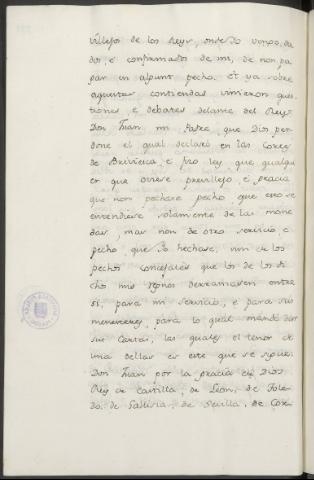 villejos de los Reys, onde Do vengo, da
dos, e confirmados de mi, de non pa
gar en algunt pecho. Et ya sobre
aquestas contiendas vinieron ques
tiones e debates delante del Rey
Don Juan mi Padre, que Dios per
done el qual declaró en las Cortes
de Briviesca, e fizo ley que qualqu
er que oviese previllejo, e gracia
que non pechase pecho, que esto se
entendiese solamente de las mone
das, mas non de otro servicio, e
pecho que Yo hechase, nin de los
pechos concejales que los de los di
cho mis Regnos derramasen entre
si, para mi servicio, e para sus
menesteres, para lo qual mandó dar
sus Cartas, las quales el tenor de
una dellas es este que se sigue.
Don Juan por la gracia de Dios
Rey de Castilla, de Leon, de Tole
do, de Gallicia, de Sevilla, de Cor-